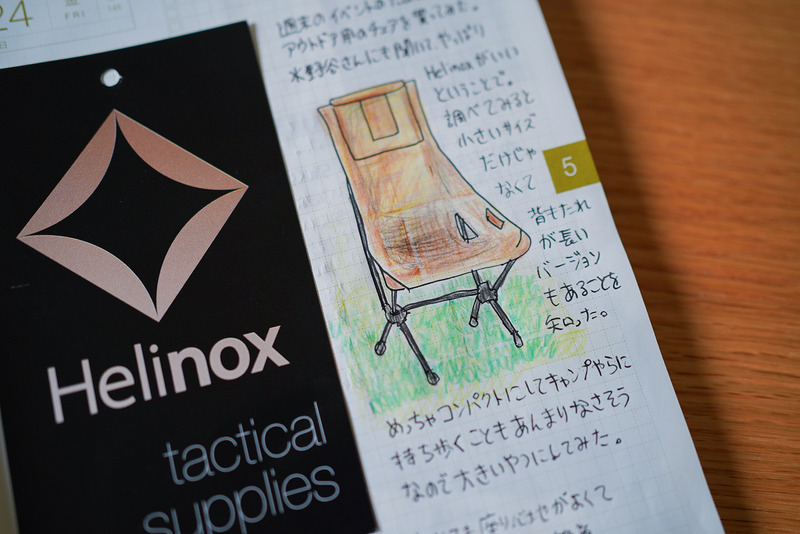 24
金
FRI
Helinox
tactical
supplies
週末のイベントの
アウトドア用のチェアを買ってみた。
水野谷さんにも聞いて、やっぱり
Helinoxがいい
ということで。
調べてみると
小さいサイズ
だけじゃ
なくて
背もたれ
が長い
バージョン
もあることを
知った。
5
めっちゃコンパクトにしてキャンプやらに
持ち歩くこともあんまりなさそう
なので大きいやつにしてみた。
座り心地がよくて